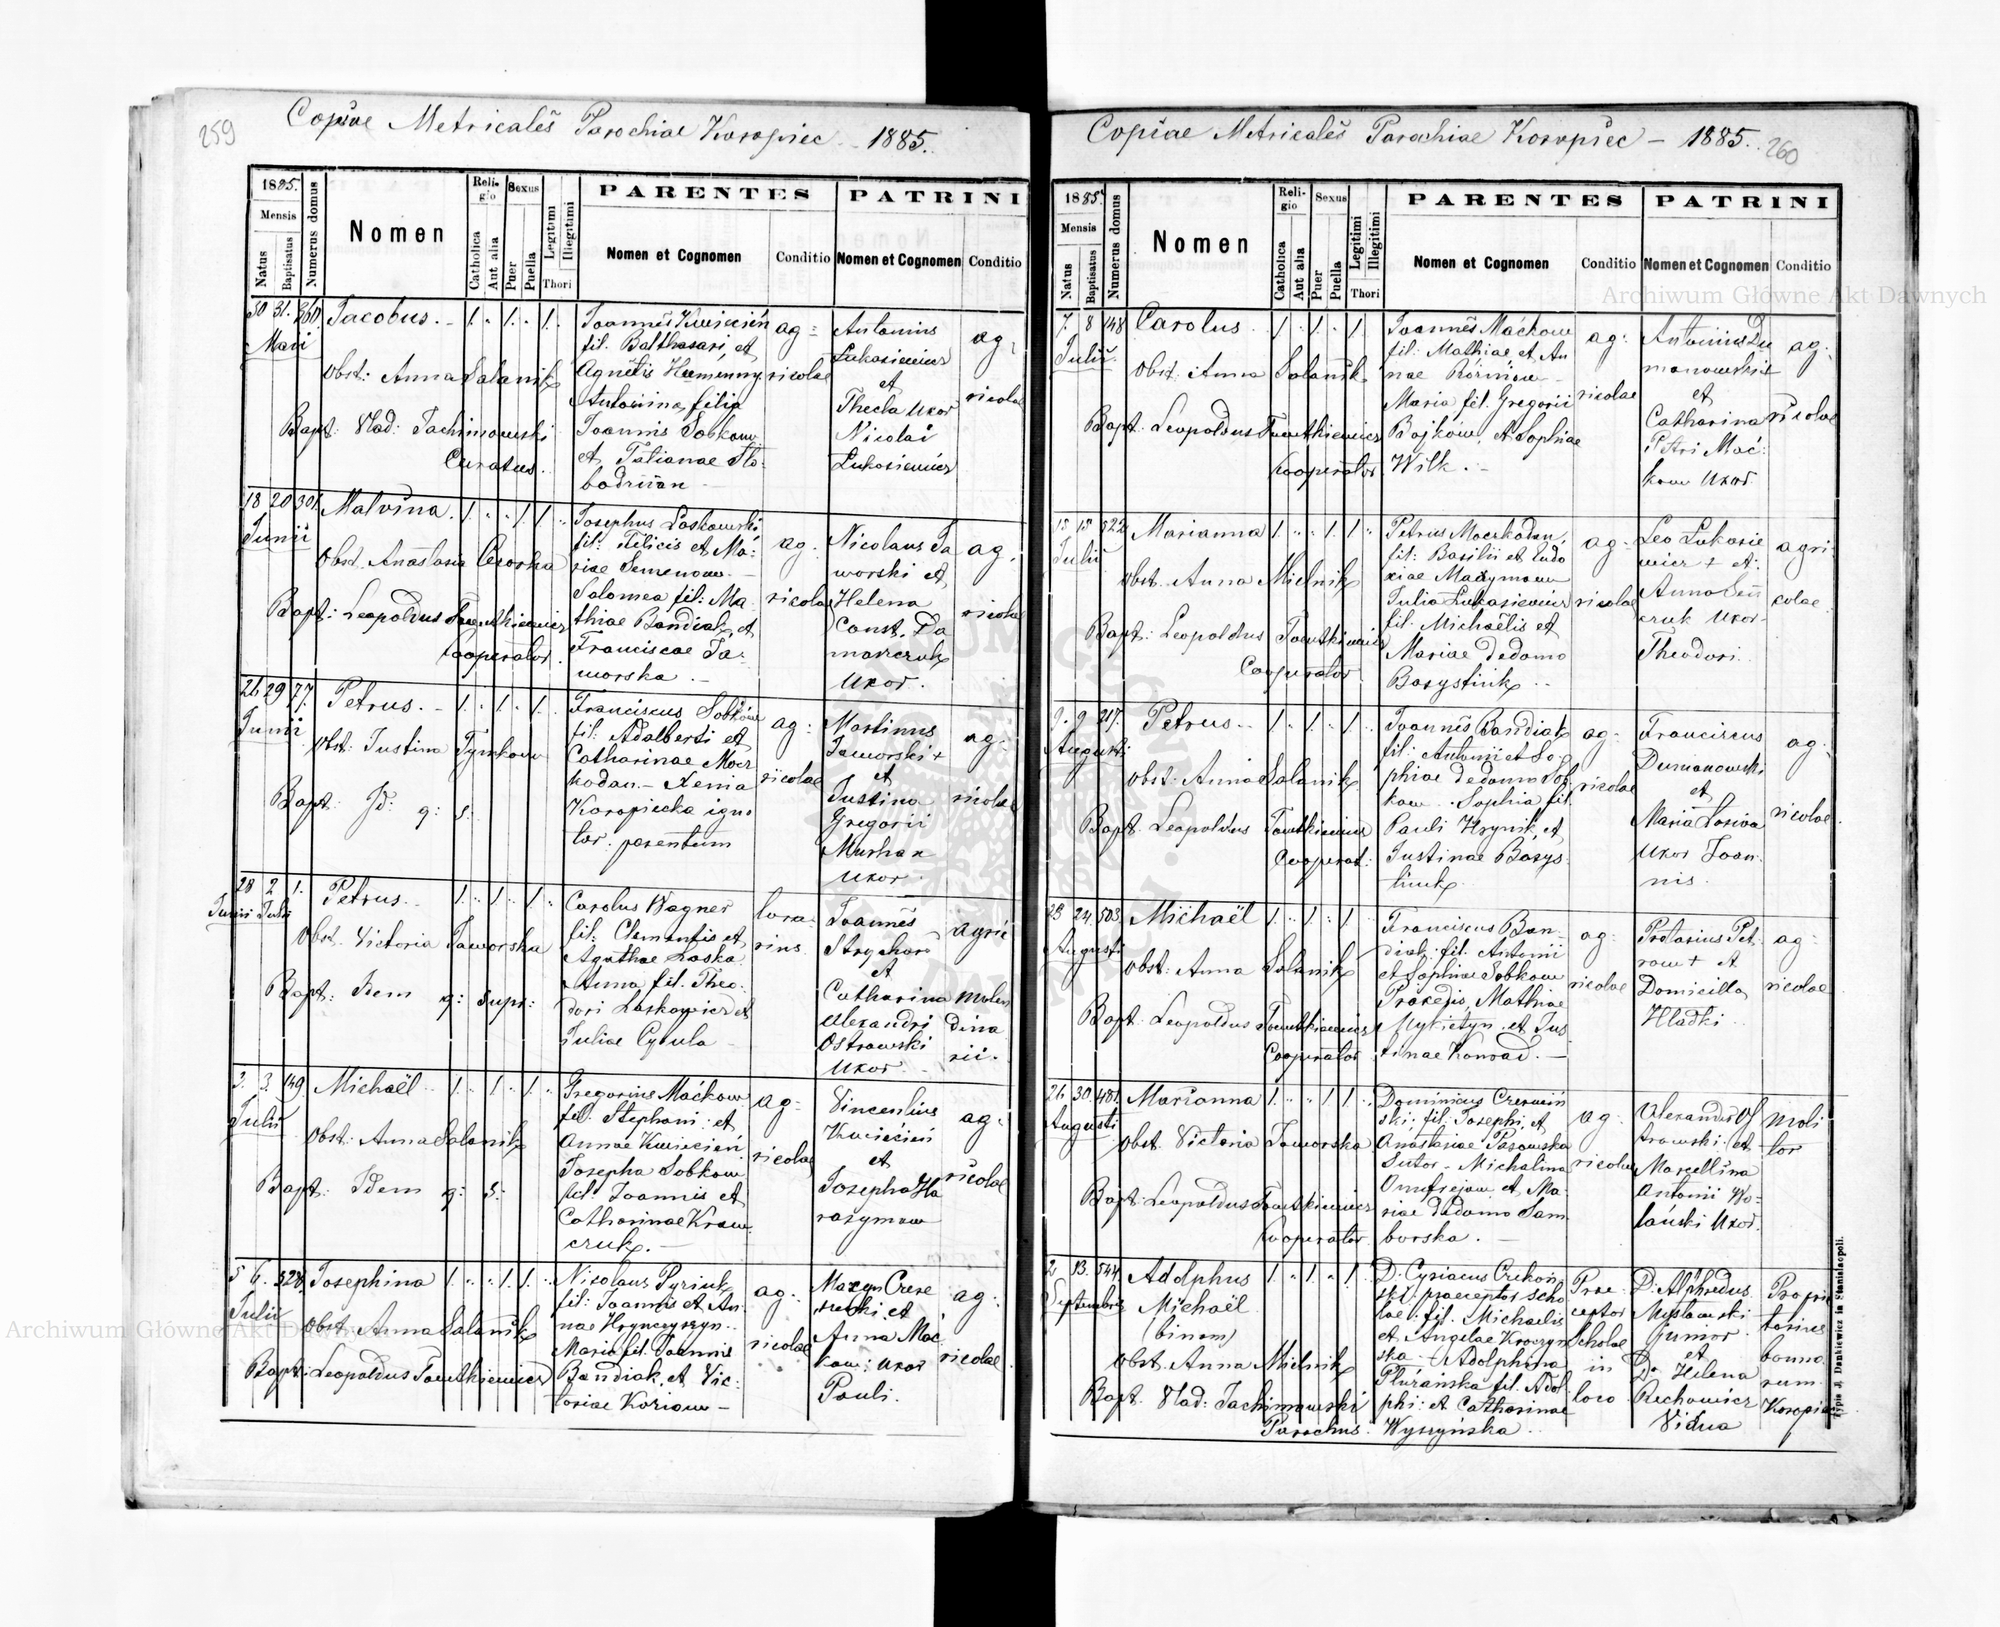 259
Copiae Metricales Parochiae Koropiec - 1885.
1885.
Mensis
Natus
Baptisatus
Numerus domus
Nomen
Religio
Catholica
Aut alia
Sexus
Puer
Puella
Legitimi
Illegitimi
Thori
PARENTES
Nomen et Cognomen
Conditio
PATRINI
Nomen et Cognomen
Conditio
30 31. 260.
Maii
Jacobus. - 1. „ 1. „ 1.
Obst: Anna Salanik
Bapt: Vlad: Jachimowski
Curatus.
Joannes Kwiecień
fil. Balthasari, et
Agnetis Humenny
Antonina filia
Joannis Soskow
et Tatianae Slo-
bodzian
ag-
ricolae
Antonius
Lukasiewicz
et
Thecla Uxor
Nicolai
Lukasiewicz
ag-
ricolae
18 20 301.
Junii
Malvina. 1. „ „ 1. 1. „
Obst. Anastasia
Bapt: Leopoldus Tomtkiewicz
Cooperator.
Josephus Loskowski,
fil: Felicis et Ma-
riae Semenow
Salomea fil: Ma-
thiae Bandiak, et
Franciscae Ja-
worska. -
ag-
ricolae
Nicolaus Ja
worski et
Helena
Const.
Uxor.
ag-
ricolae
26 29 77.
Junii
Petrus. - 1. „ 1. „ 1. „
Obst: Justina Tymkow
Bapt: Id: q: s:
Franciscus Sobkow
fil: Adalberti et
Catharinae Mocz
kodan - Xenia
Koropiecka igno
tor. parentum
ag-
ricolae
Martinus
Jaworski +
et
Justina
Gregorii
Uxor.
ag-
ricolae
28 2 1.
Junii Julii
Petrus. 1. „ 1. „ 1. „
Obst. Victoria Jaworska
Bapt: Idem q: supr:
Carolus Wagner
fil: Clementis et
Agathae Laska
Anna fil. Theo-
dori Laskowicz et
Juliae Cybula -
lora-
rius
Joannes
et
Catharina
Alexandri
Ostrowski
Uxor.
agric
molen
dina
rii.
3. 3. 149.
Julii
Michaël 1. „ 1. „ 1. „
Obst: Anna Salanik
Bapt: Idem q: s:
Gregorius Maćkow
fil. Stephani et
Annae Kwiecień
Josepha Sobkow
fil. Joannis et
Catharinae Kraw
czuk. -
ag-
ricolae
Vincentius
Kwiecień
et
Josepha Ha
rasymow
ag-
ricolae
5 6. 328.
Julii
Josephina 1. „ „ 1. 1. „
Obst. Anna Salanik
Bapt: Leopoldus Tomtkiewicz
Nicolaus
fil: Joannis et An-
nae Hrynczyszyn
Maria fil. Joannis
Bandiak, et Vic-
toriae Koriow -
ag-
ricolae
et
Anna Mać
kow: uxor
Pauli.
ag-
ricolae
Copiae Metricales Parochiae Koropiec - 1885.
260
1885.
Mensis
Natus
Baptisatus
Numerus domus
Nomen
Religio
Catholica
Aut alia
Sexus
Puer
Puella
Legitimi
Illegitimi
Thori
PARENTES
Nomen et Cognomen
Conditio
PATRINI
Nomen et Cognomen
Conditio
7. 8 148
Julii
Carolus 1 „ 1. „ 1.
Obst: Anna Salanik
Bapt. Leopoldus Tomtkiewicz
Cooperator
Joannes Maćkow
fil: Mathiae, et An
nae
Maria fil. Gregorii
Bojków, et Sophiae
Wilk. -
ag-
ricolae
Antonius Du
manowski +
et
Catharina
Petri Mać-
kow Uxor.
ag-
ricolae
15 18 522
Julii
Marianna 1 „ „ 1. 1. „
Obst. Anna Mielnik
Bapt: Leopoldus Tomtkiewicz
Cooperator
Petrus Moczkodan,
fil: Basilii et Eudo
xiae Maxymow
Julia Lukasiewicz
fil. Michaëlis et
Mariae de domo
ag-
ricolae
Leo Lukasie
wicz + et
Anna
Uxor
Theodori.
agri
colae
9. 9 217.
Augusti
Petrus 1. „ 1. „ 1 „
Obst: Anna Salanik
Bapt. Leopoldus Tomtkiewicz
Cooperat:
Joannes Bandiak
fil: Antonii et So
phiae de domo Sob
kow. Sophia fil.
Pauli Hrynik, et
Justinae
ag-
ricolae
Franciscus
Dumanowski
et
Maria
Uxor Joan-
nis.
ag-
ricolae
23 24 503
Augusti
Michaël 1. „ 1. „ 1
Obst: Anna Salanik
Bapt. Leopoldus Tomtkiewicz
Cooperator
Franciscus Ban-
diak fil. Antonii
et Sophiae Sobkow
Praxedis, Mathiae
Mykietyn, et Jus
tinae Konrad. -
ag-
ricolae
Protasius Pet
row + et
Domicilla
Hladki
ag-
ricolae
26 30. 481.
Augusti
Marianna 1. „ „ 1 1 „
Obst. Victoria Jaworska
Bapt. Leopoldus Tomtkiewicz
Cooperator
Dominicus Czerwiń
ski, fil. Josephi, et
Anastasiae
Sutor - Michalina
et Ma-
riae de domo Sam
borska. -
ag-
ricolae
Alexander Os
trowski et
Marcellina
Antonii Wo-
lański Uxor.
moli
tor
2 13. 544.
Septembris
Adolphus 1. „ 1. „ 1. „
Michaël
(binom)
Obst. Anna Mielnik
Bapt: Vlad: Jachimowski
Parochus.
D. Cyriacus
ski, praeceptor scho
lae: fil. Michaelis
et Angelae
ska - Adolphina
fil. Adol
phi: et Catharinae
Wyszyńska.
Prae
ceptor
scholae
in
loco
D. Alphredus
Mysłowski
junior
et
D. Helena
Vidua
Proprie
tarius
bono
rum
Koropiec
Typis J. Dankiewicz in Stanislaopoli.
Archiwum Główne Akt Dawnych
Archiwum Główne Akt Dawnych